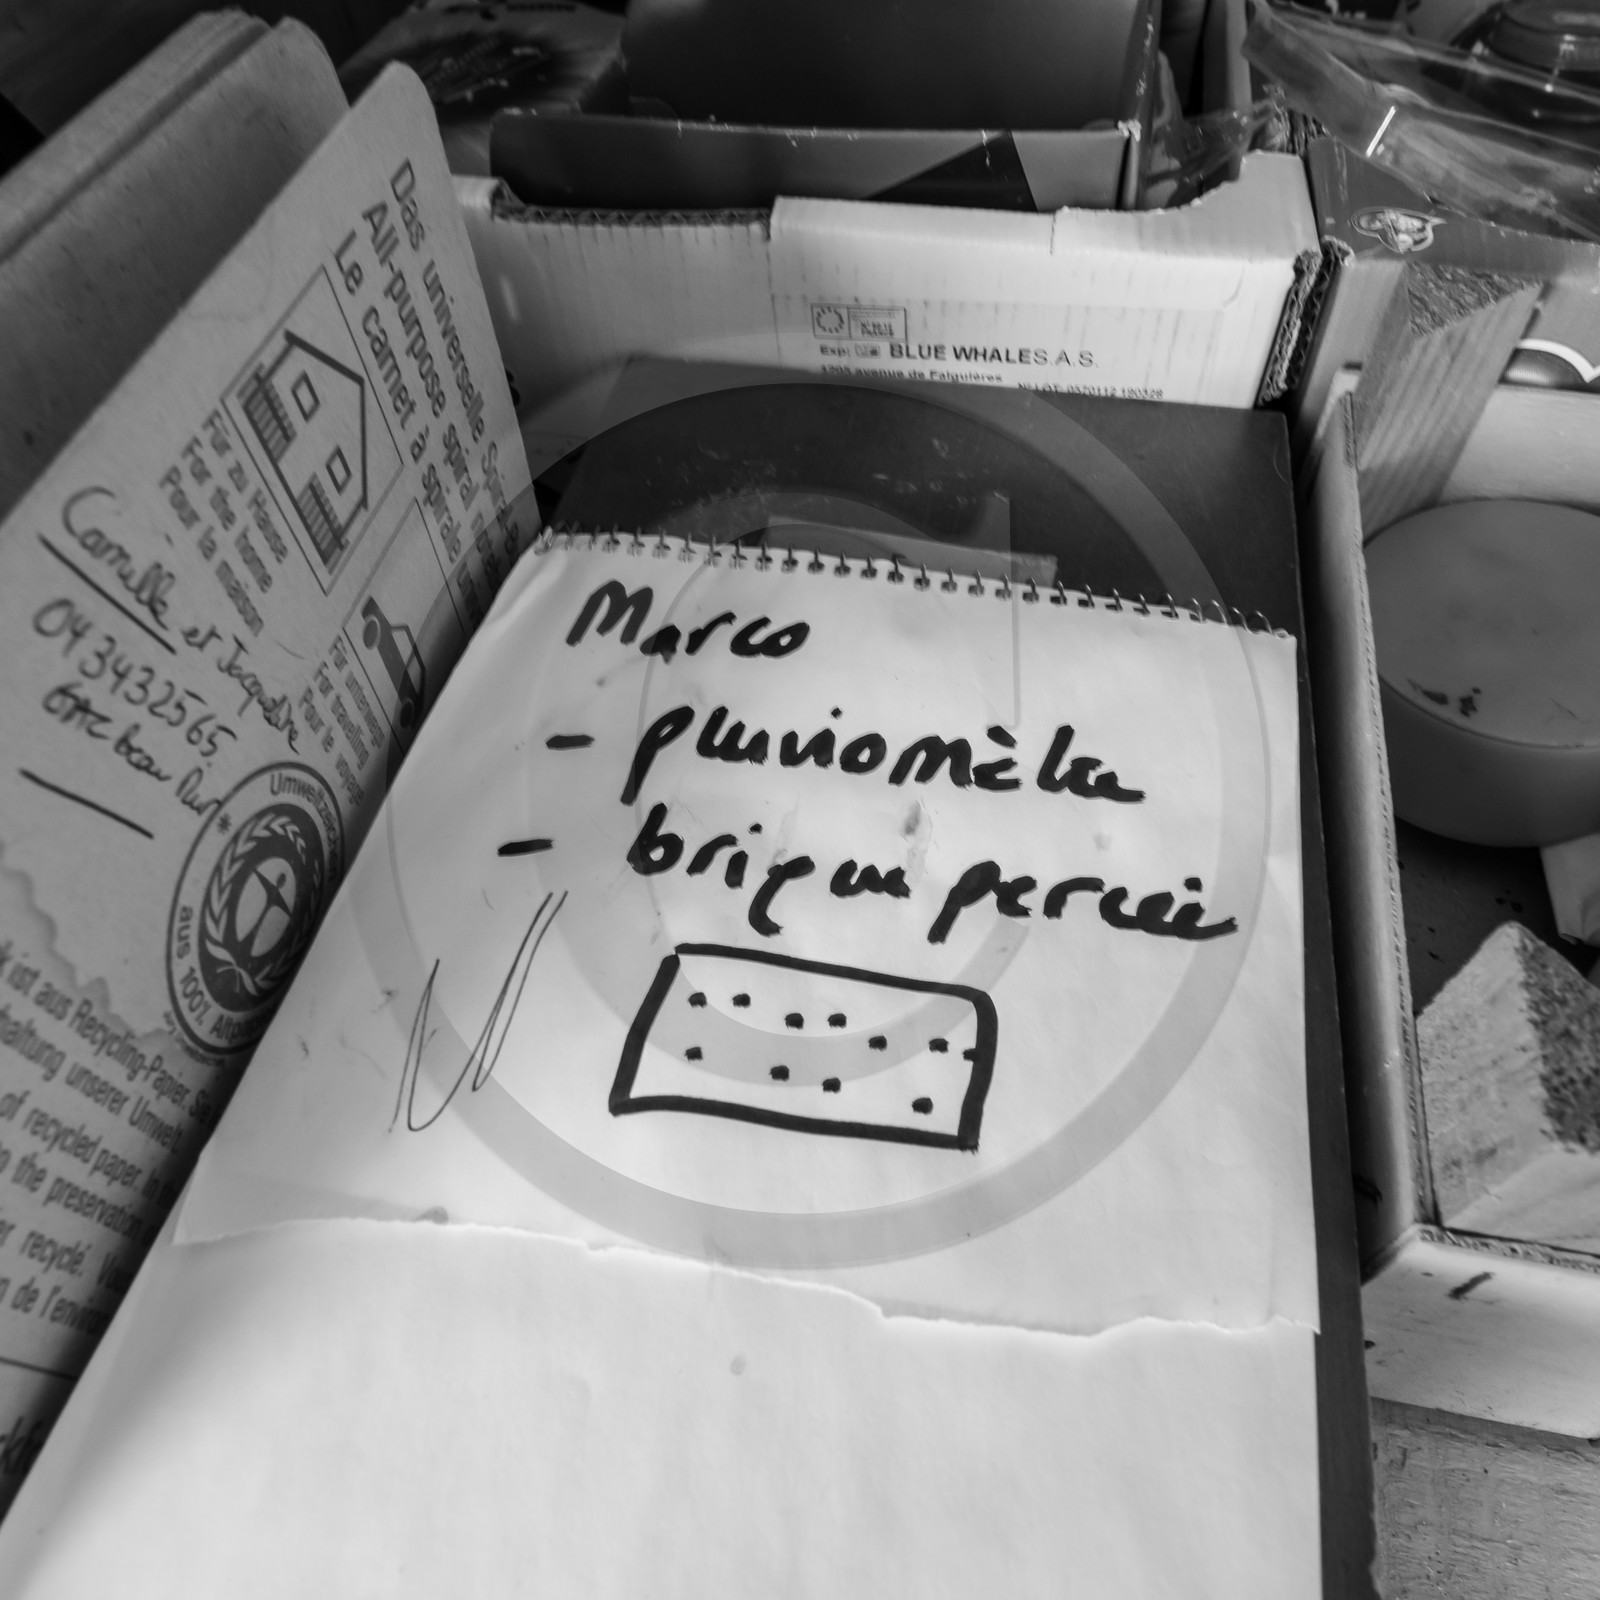 Das universelle
All-purpose spiral
Le carnet à spirale
Für zu Hause
For the home
Pour la maison
Für unterwegs
For travelling
Pour le voyage
Camille et Jacqueline
043432565
Umweltzeichen
aus 100%
ist aus Recycling-Papier.
haltung unserer Umwelt.
of recycled paper.
the preservation
recyclé.
de l'environ
Exp: BLUE WHALE S.A.S.
1205 avenue de Falguières
Marco
- pluviomètre
- brique percée